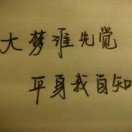 大梦谁先觉
平身我自知